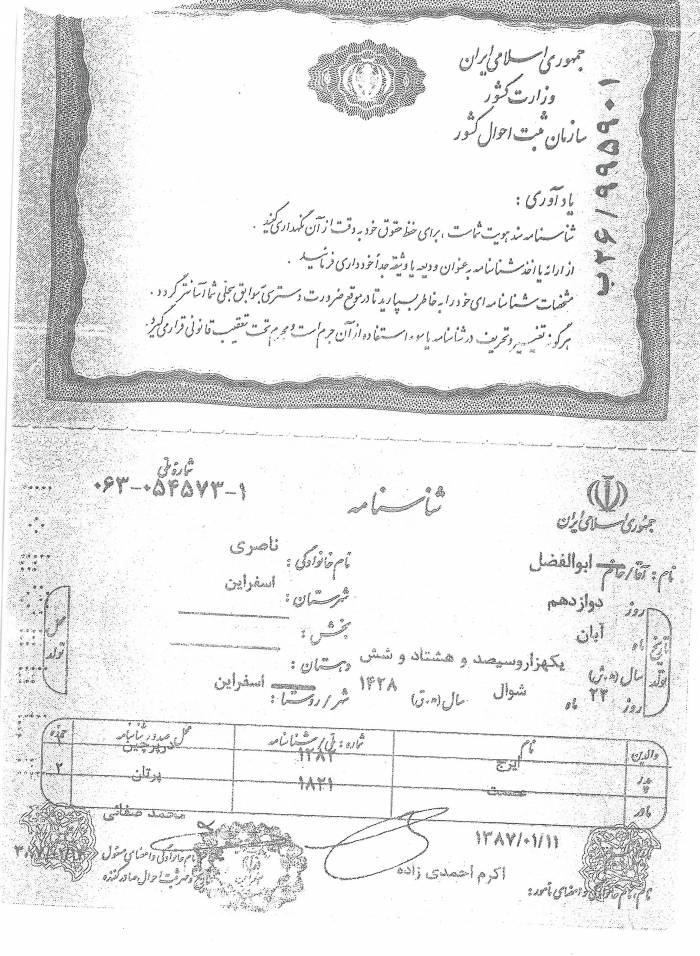 جمهوری اسلامی ایران
وزارت کشور
سازمان ثبت احوال کشور
ب۲۶/۹۹۵۹۰۱
یادآوری :
شناسنامه سند هویت شماست ، برای حفظ حقوق خود به دقت از آن نگهداری کنید .
از ارائه یا اخذ شناسنامه به عنوان ودیعه یا وثیقه جداً خودداری فرمائید .
مشخصات شناسنامه ای خود را به خاطر بسپارید تا در موقع ضرورت دسترسی به سوابق سجلی شما آسانتر گردد .
هرگونه تغییر و تحریف در شناسنامه یا سوء استفاده از آن جرم است و مجرم تحت تعقیب قانونی قرار می گیرد.
شماره ملی
۰۶۳-۰۵۴۵۷۳-۱
شناسنامه
جمهوری اسلامی ایران
نام : آقا/خانم ابوالفضل
نام خانوادگی : ناصری
تاریخ تولد
روز دوازدهم
شهرستان : اسفراین
محل تولد
ماه آبان
بخش :
سال (ه.ش) یکهزار و سیصد و هشتاد و شش
دهستان :
روز ۲۲ ماه شوال سال (ه.ق) ۱۴۲۸
شهر/روستا : اسفراین
والدین نام شماره : ملی/شناسنامه محل صدور شناسنامه حوزه
پدر ایرج ۱۲۸۲ ۱
مادر عصمت ۱۸۲۱ پرتان ۲
۱۳۸۷/۰۱/۱۱
محمد صفائی
نام خانوادگی و امضای مسئول
و مهر ثبت احوال صادرکننده
اکرم احمدی زاده
نام، نام خانوادگی و امضای مأمور: